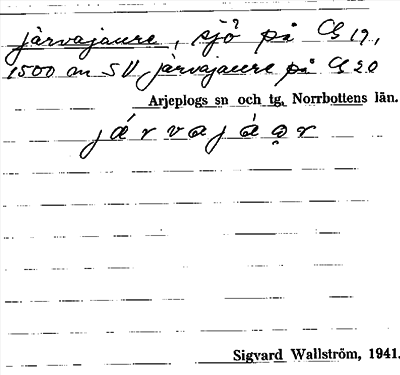 järvajaure, sjö på C§ 19,
1500 m SV järvajaure på C§ 20
Arjeplogs sn och tg, Norrbottens län.
járvajáo̧r
Sigvard Wallström, 1941.